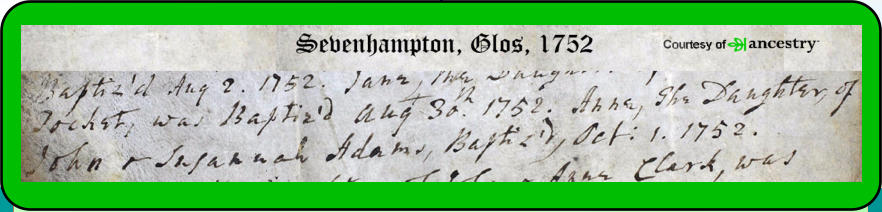 Sevenhampton, Glos, 1752
Courtesy of ancestry
Baptiz'd Aug 2. 1752. Jane, the Daugh
Tocket, was Baptiz'd Aug 30th. 1752. Anne, The Daughter, of
John & Susannah Adams, Baptiz'd, Oct: 1. 1752.
Anne Clark, was